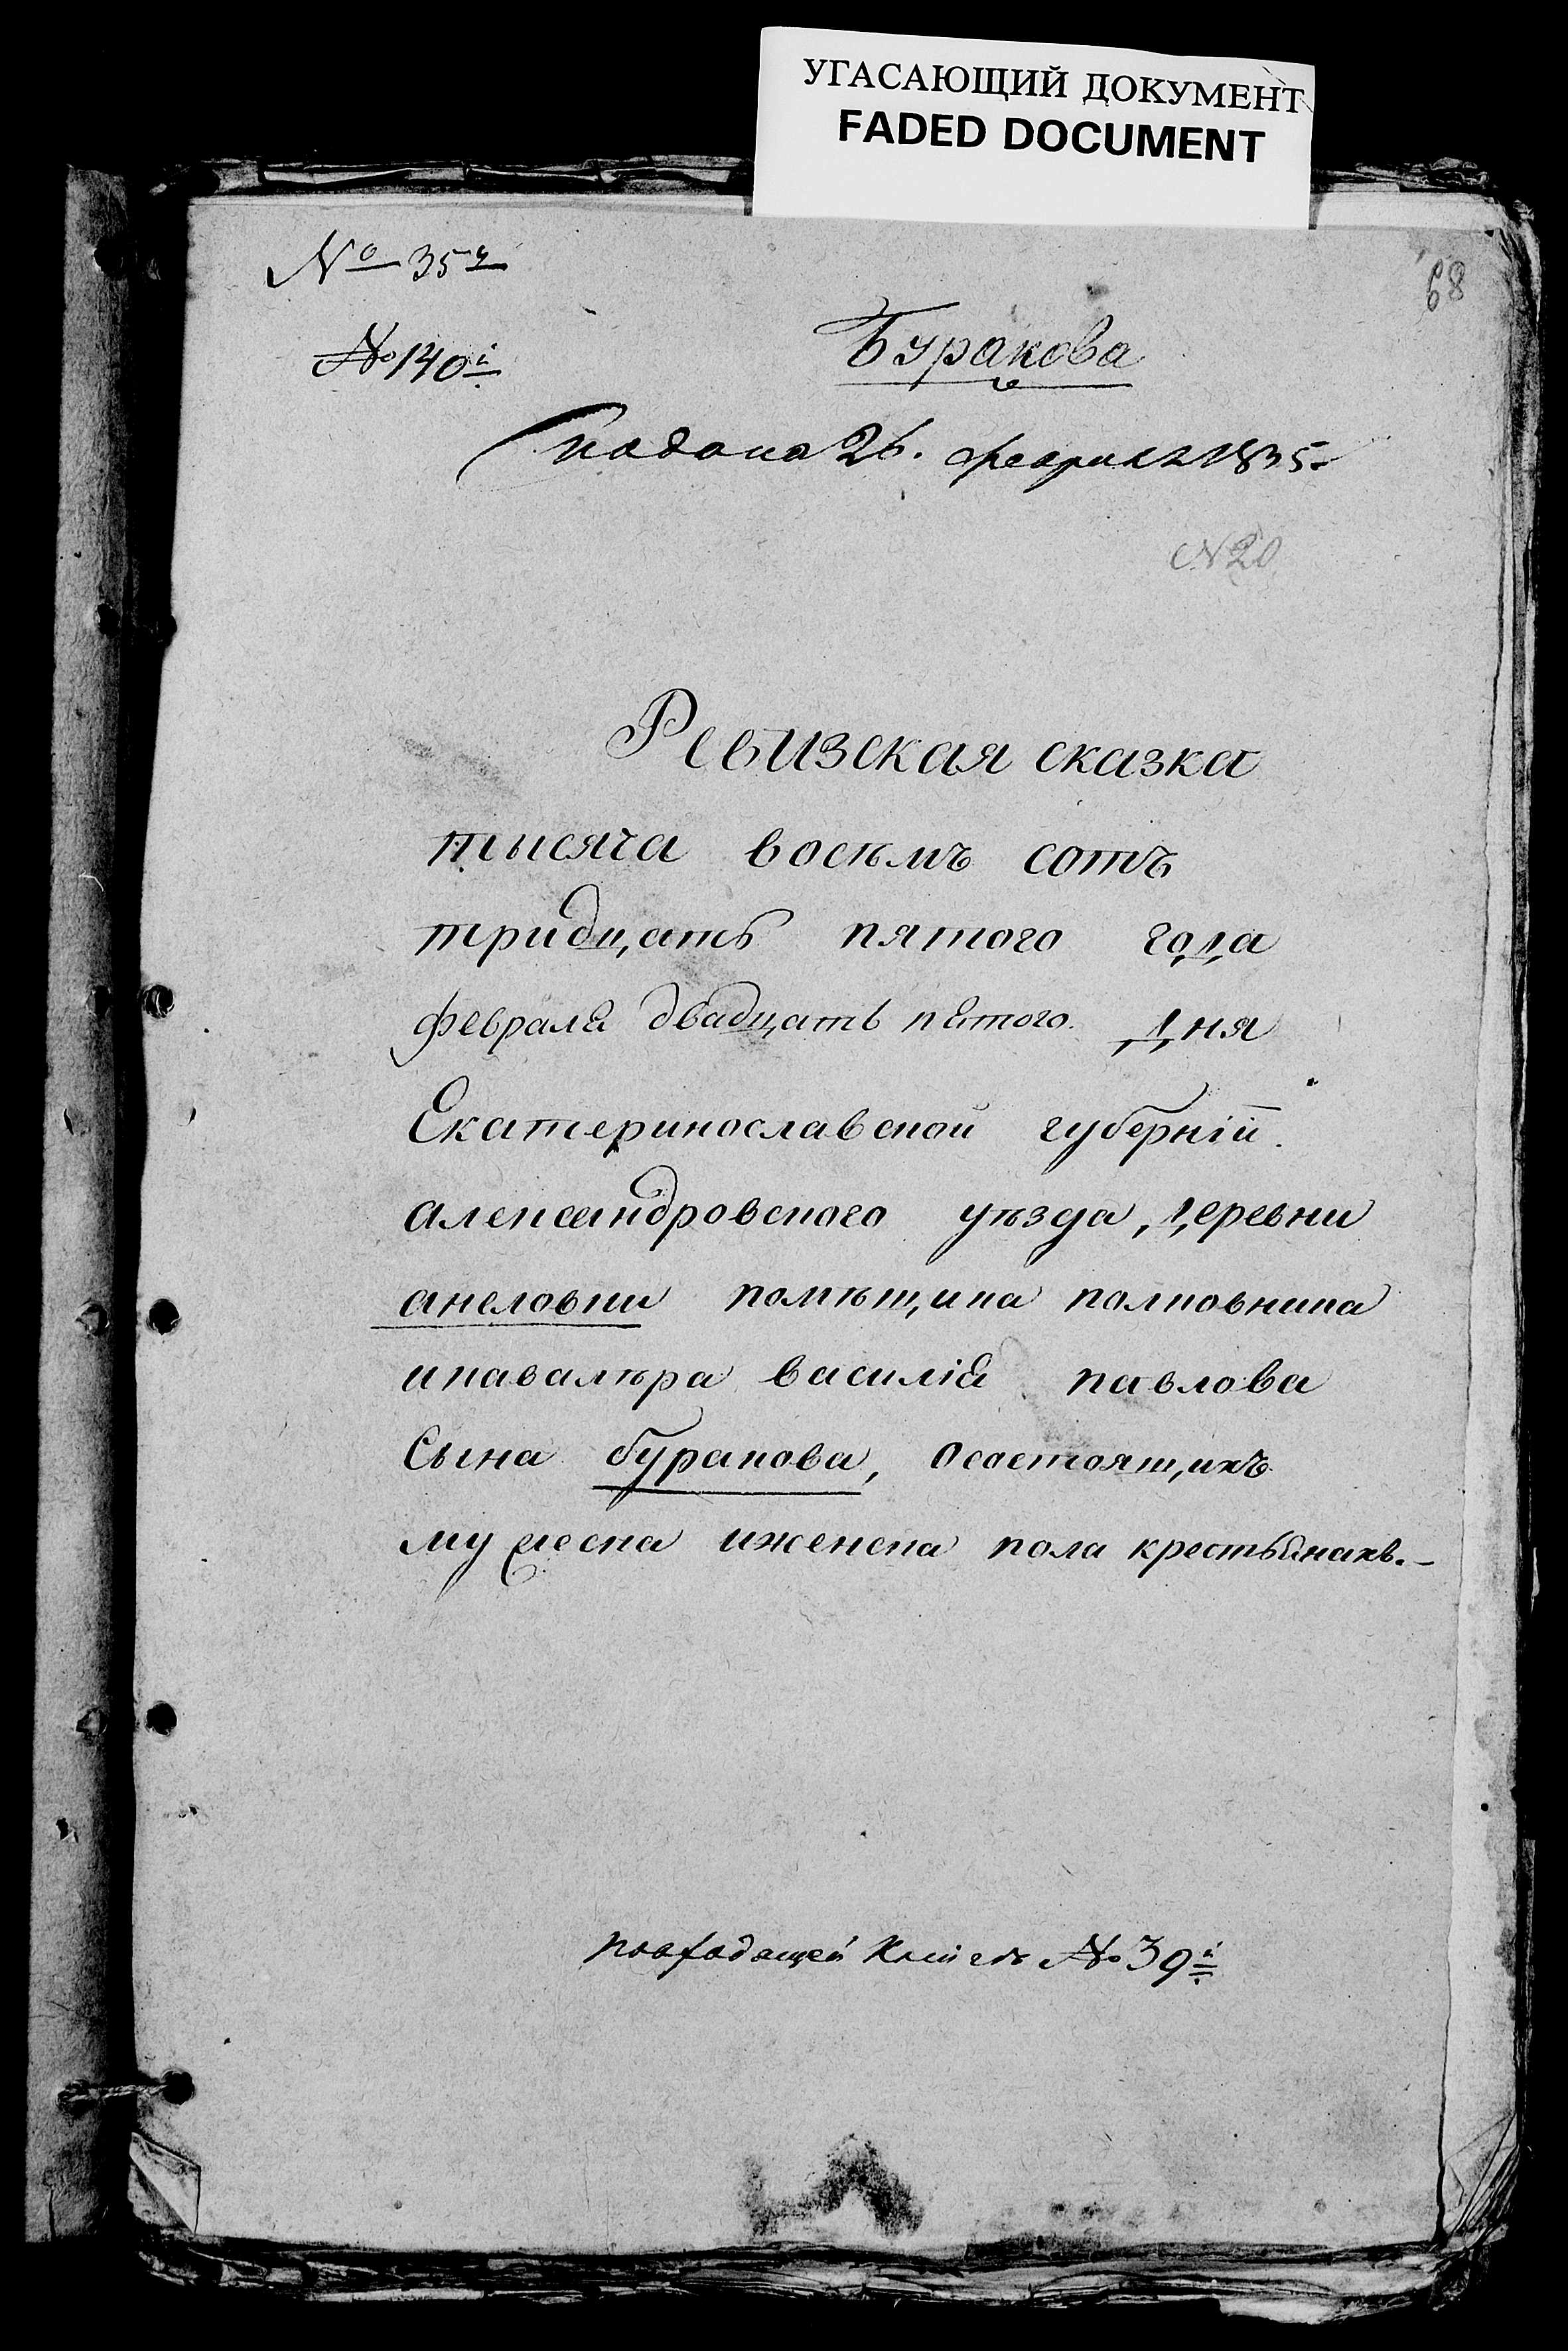 УГАСАЮЩИЙ ДОКУМЕНТ
FADED DOCUMENT
68
№ 35й
№ 140й
Буракова
подана 26. февраля 1835.
N20
Ревизская сказка
тысяча восѣмъ сотъ
тридцать пятого года
февраля двадцать пятого. Дня
Екатеринославской губерніи.
александровского уѣзда, Деревни
анеловки помѣщика полковника
икавалѣра василія павлова
Сына буракова, осостоящихъ
мужеска иженска пола крестьянахъ.-
повходящей Книге № 39й